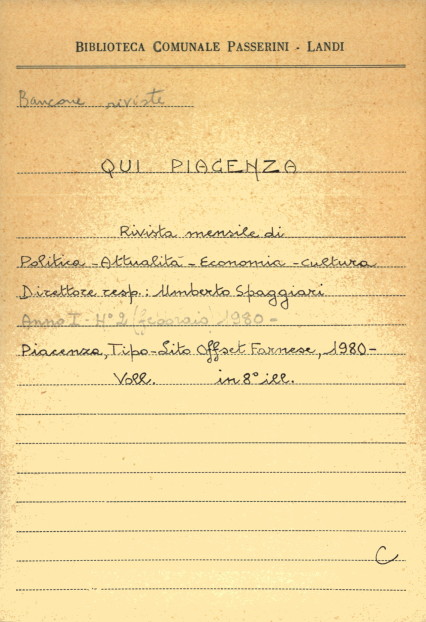 BIBLIOTECA COMUNALE PASSERINI - LANDI
Bancone riviste
QUI PIACENZA
Rivista mensile di
Politica - Attualità - Economia - Cultura
Direttore resp.: Umberto Spaggiari
Anno I - N° 2 (febbraio) 1980 -
Piacenza, Tipo-Lito Offset Farnese, 1980 -
Voll. in 8° ill.
C